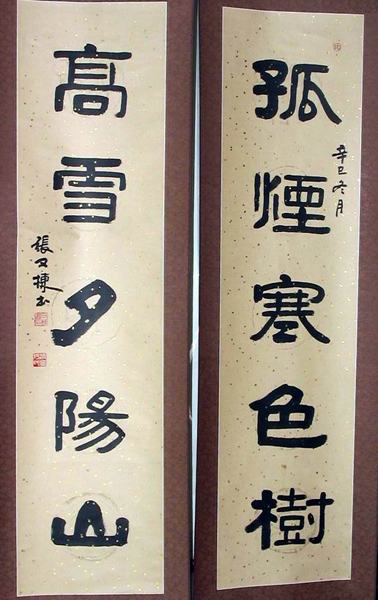 孤煙寒色樹
辛巳冬月
高雪夕陽山
張又棟書